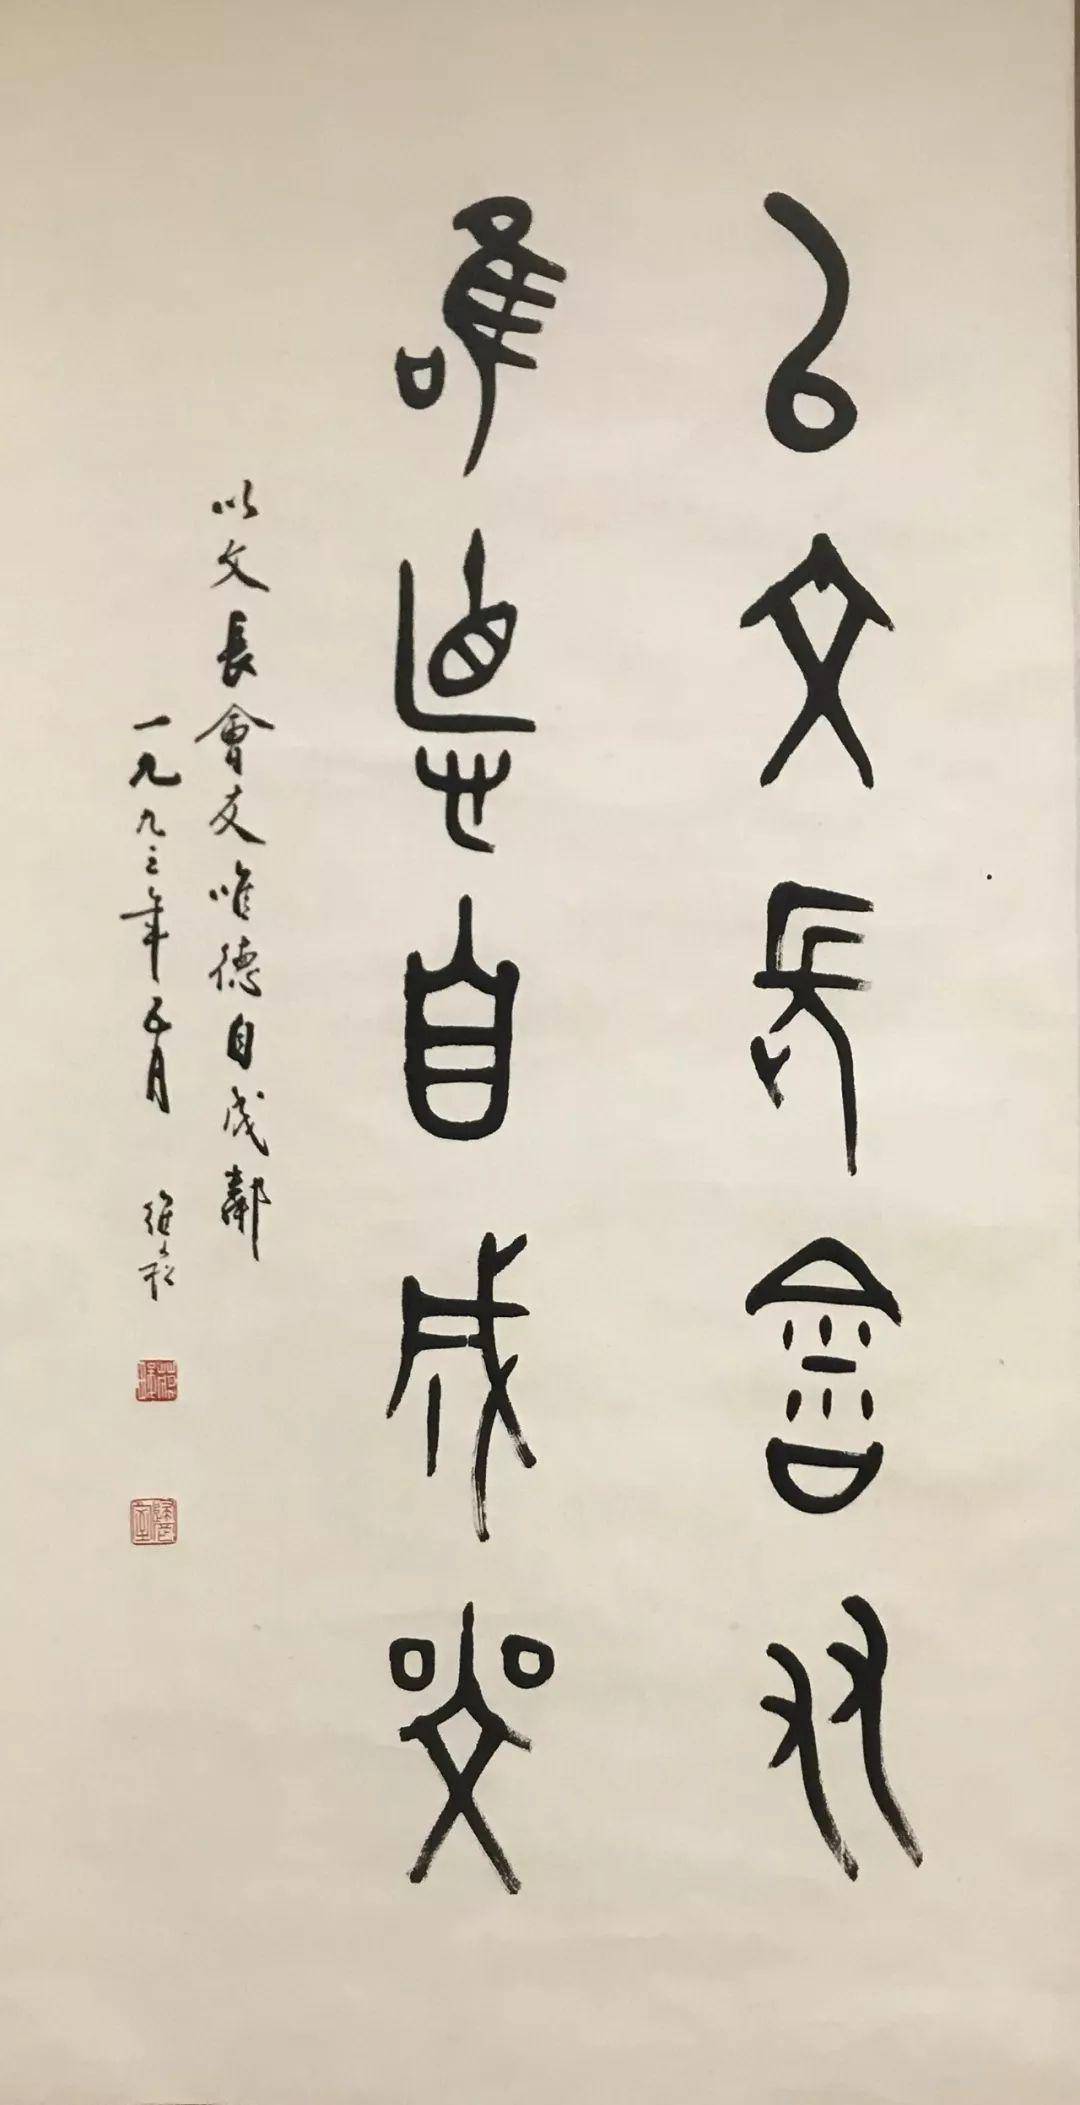 以文長會友
唯德自成鄰
以文長會友唯德自成鄰
一九九三年五月 維崧